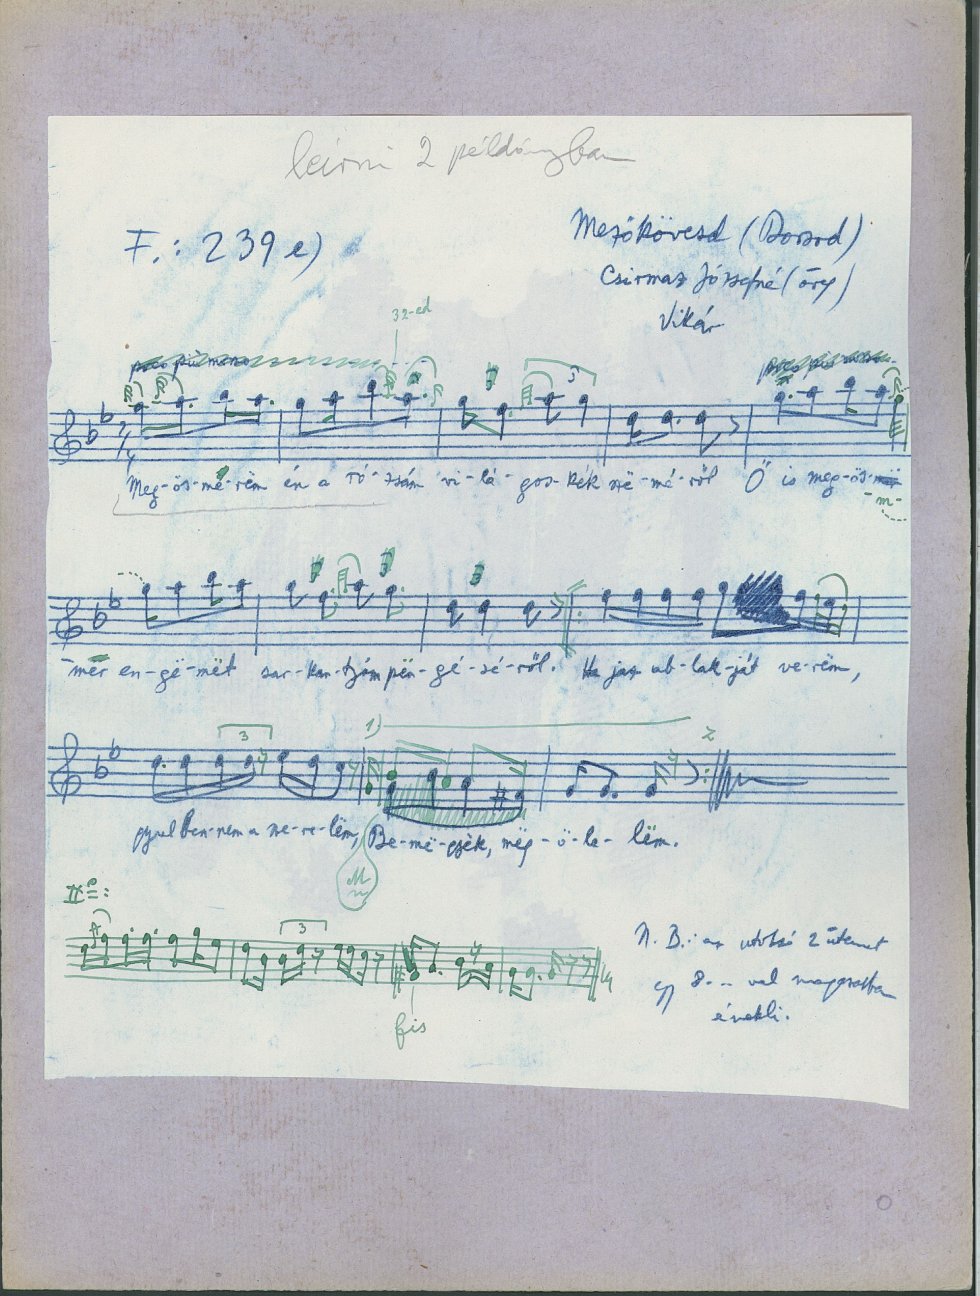 leírni 2 példányban
F.: 239 e)
Mezőkövesd (Borsod)
Csirmaz Józsefné (öreg)
Vikár
32-ed
poco più meno
poco più meno
5
2/4
Meg-ös-mé-rëm én a ró-zsám vi-lá-gos-kék szë-mé-ről Ő is meg-ös-
-m-
-mér en-gë-mët sar-kan-tyúm pën-gé-sé-ről. Ha jaz ab-lak-ját ve-rëm,
3
1)
2
gyull ben-nem a sze-re-lëm, Be-më-gyëk, mëg-ö-le-lëm.
M
II°:
3
N. B.: az utolsó 2 ütemet
egy 8.-val magasabban
énekli.
fis